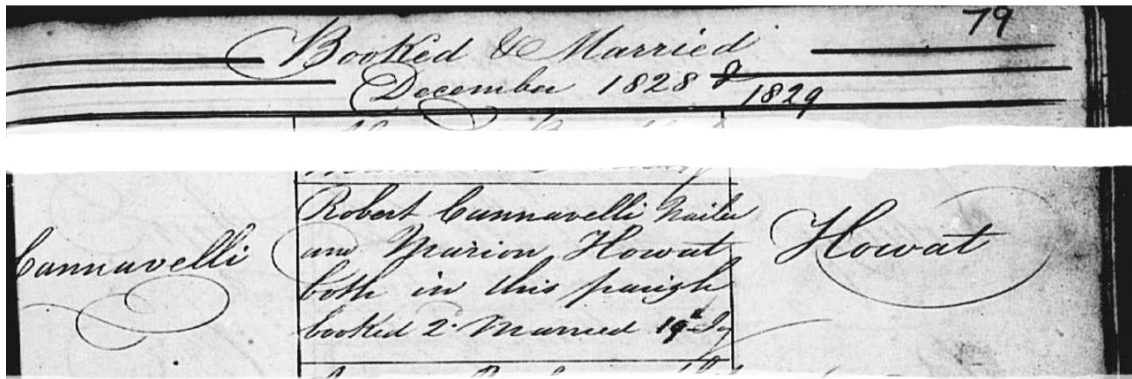 79
Booked & Married
December 1828 & 1829
Cannavelli
Robert Cannavelli Nailer
and Marion Howat
both in this parish
booked 2. Married 19th Dy
Howat